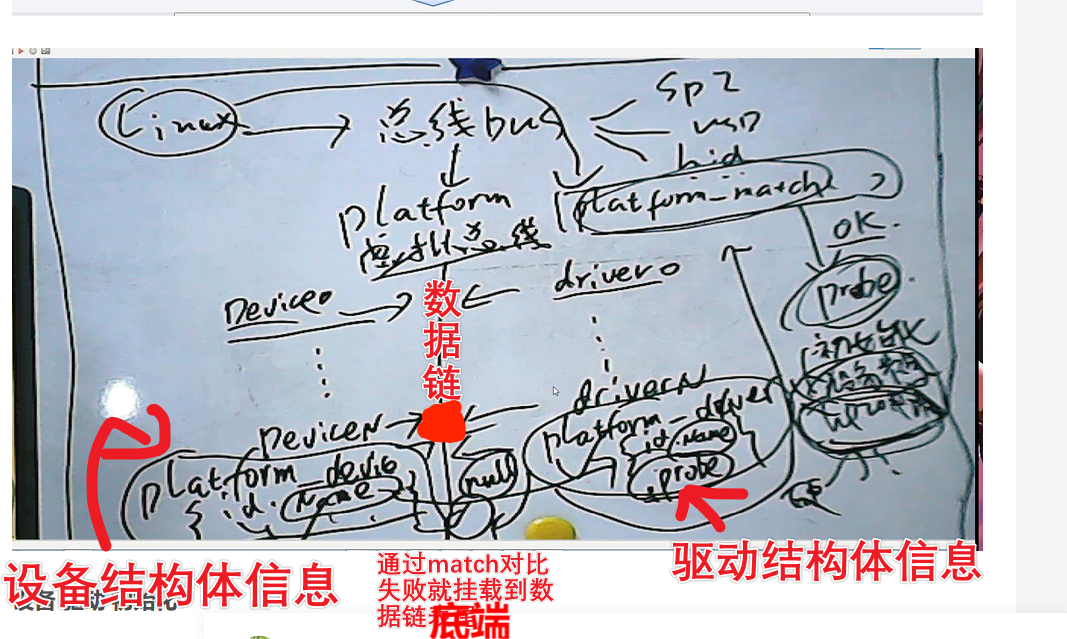 Linux
总线bus
SPI
usb
hid
platform
虚拟总线
platform_match
OK.
probe
Device0
driver0
数
据
链
初始化
DeviceN
driverN
platform_device
{ id. name }
null
platform_driver
{ id. name
.probe }
设备结构体信息
通过match对比
失败就挂载到数
底端
驱动结构体信息